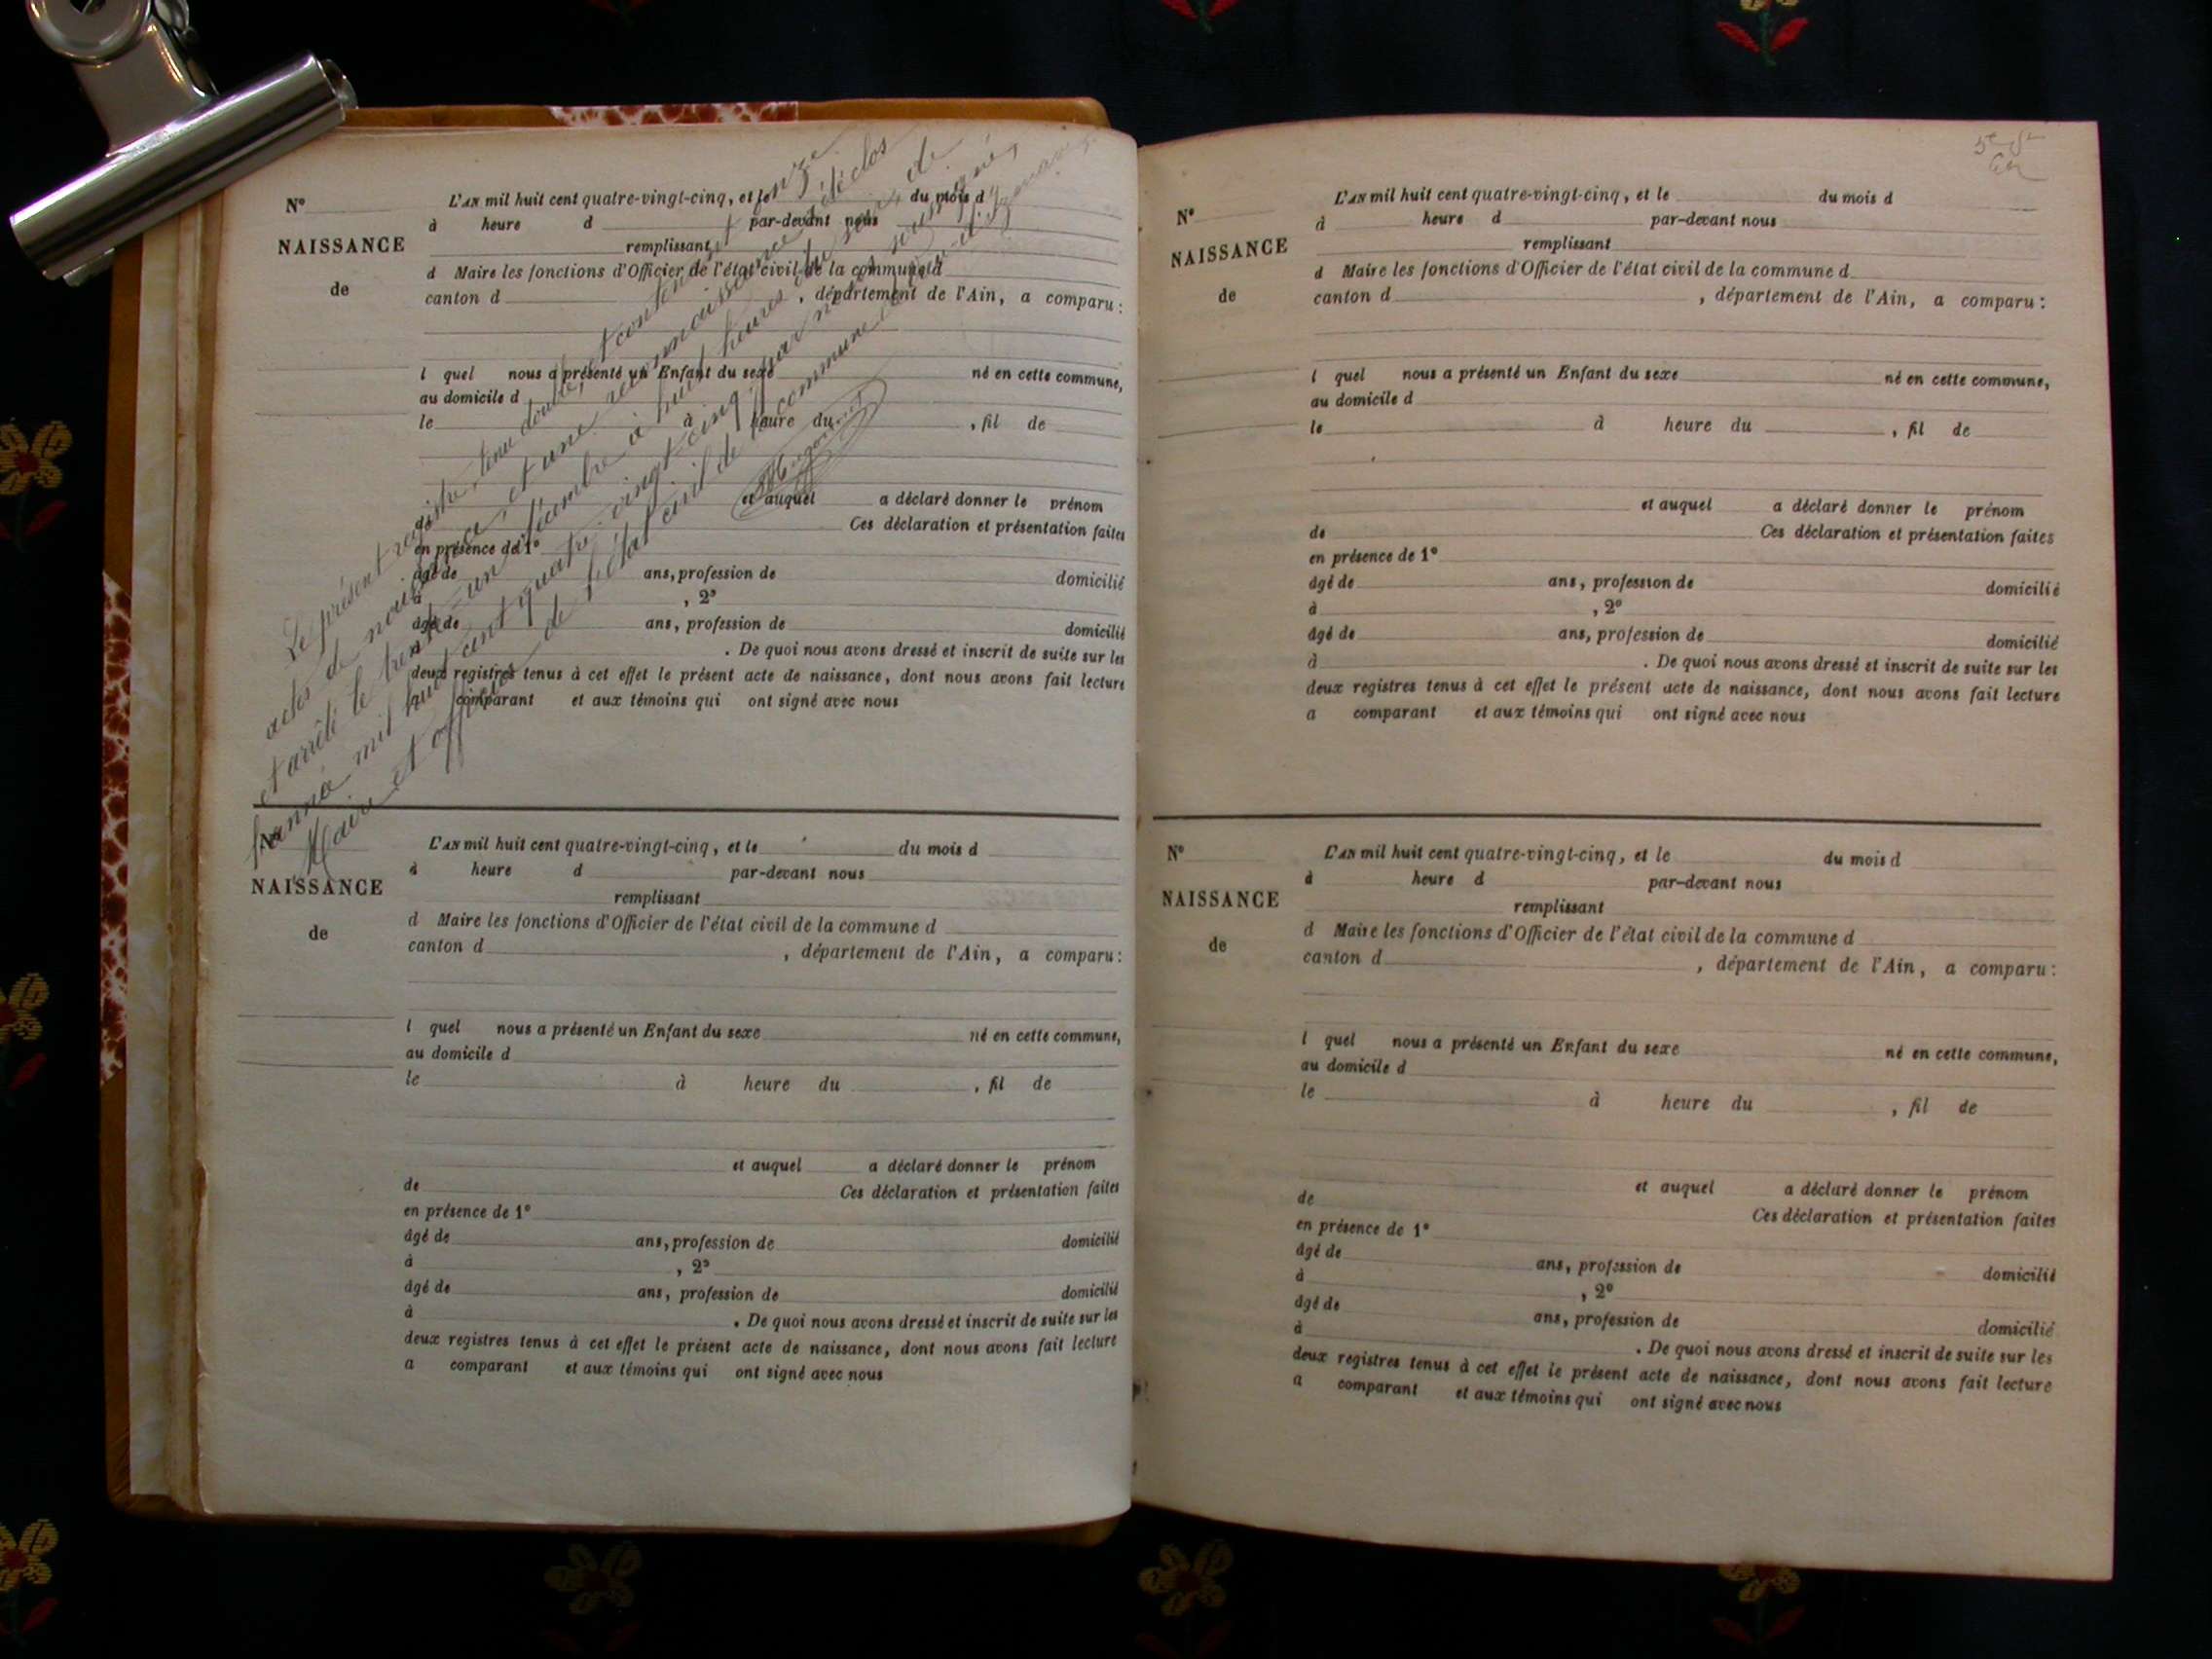 N°
NAISSANCE
de
L'AN mil huit cent quatre-vingt-cinq, et le du mois d
à heure d par-devant nous
remplissant
d Maire les fonctions d'Officier de l'état civil de la commune d
canton d , département de l'Ain, a comparu :
l quel nous a présenté un Enfant du sexe né en cette commune,
au domicile d
le à heure du , fil de
et auquel a déclaré donner le prénom
de Ces déclaration et présentation faites
en présence de 1°
âgé de ans, profession de domicilié
à , 2°
âgé de ans, profession de domicilié
à . De quoi nous avons dressé et inscrit de suite sur les
deux registres tenus à cet effet le présent acte de naissance, dont nous avons fait lecture
a comparant et aux témoins qui ont signé avec nous
Le présent registre, tenu double, et contenant onze
actes de naissance, et une reconnaissance, a été clos
et arrêté le trente-un décembre à huit heures du soir, de
l'année mil huit cent quatre-vingt-cinq, par nous soussigné,
Maire et officier de l'état civil de la commune
N°
NAISSANCE
de
L'AN mil huit cent quatre-vingt-cinq, et le du mois d
à heure d par-devant nous
remplissant
d Maire les fonctions d'Officier de l'état civil de la commune d
canton d , département de l'Ain, a comparu :
l quel nous a présenté un Enfant du sexe né en cette commune,
au domicile d
le à heure du , fil de
et auquel a déclaré donner le prénom
de Ces déclaration et présentation faites
en présence de 1°
âgé de ans, profession de domicilié
à , 2°
âgé de ans, profession de domicilié
à . De quoi nous avons dressé et inscrit de suite sur les
deux registres tenus à cet effet le présent acte de naissance, dont nous avons fait lecture
a comparant et aux témoins qui ont signé avec nous
N°
NAISSANCE
de
L'AN mil huit cent quatre-vingt-cinq, et le du mois d
à heure d par-devant nous
remplissant
d Maire les fonctions d'Officier de l'état civil de la commune d
canton d , département de l'Ain, a comparu :
l quel nous a présenté un Enfant du sexe né en cette commune,
au domicile d
le à heure du , fil de
et auquel a déclaré donner le prénom
de Ces déclaration et présentation faites
en présence de 1°
âgé de ans, profession de domicilié
à , 2°
âgé de ans, profession de domicilié
à . De quoi nous avons dressé et inscrit de suite sur les
deux registres tenus à cet effet le présent acte de naissance, dont nous avons fait lecture
a comparant et aux témoins qui ont signé avec nous
N°
NAISSANCE
de
L'AN mil huit cent quatre-vingt-cinq, et le du mois d
à heure d par-devant nous
remplissant
d Maire les fonctions d'Officier de l'état civil de la commune d
canton d , département de l'Ain, a comparu :
l quel nous a présenté un Enfant du sexe né en cette commune,
au domicile d
le à heure du , fil de
et auquel a déclaré donner le prénom
de Ces déclaration et présentation faites
en présence de 1°
âgé de ans, profession de domicilié
à , 2°
âgé de ans, profession de domicilié
à . De quoi nous avons dressé et inscrit de suite sur les
deux registres tenus à cet effet le présent acte de naissance, dont nous avons fait lecture
a comparant et aux témoins qui ont signé avec nous